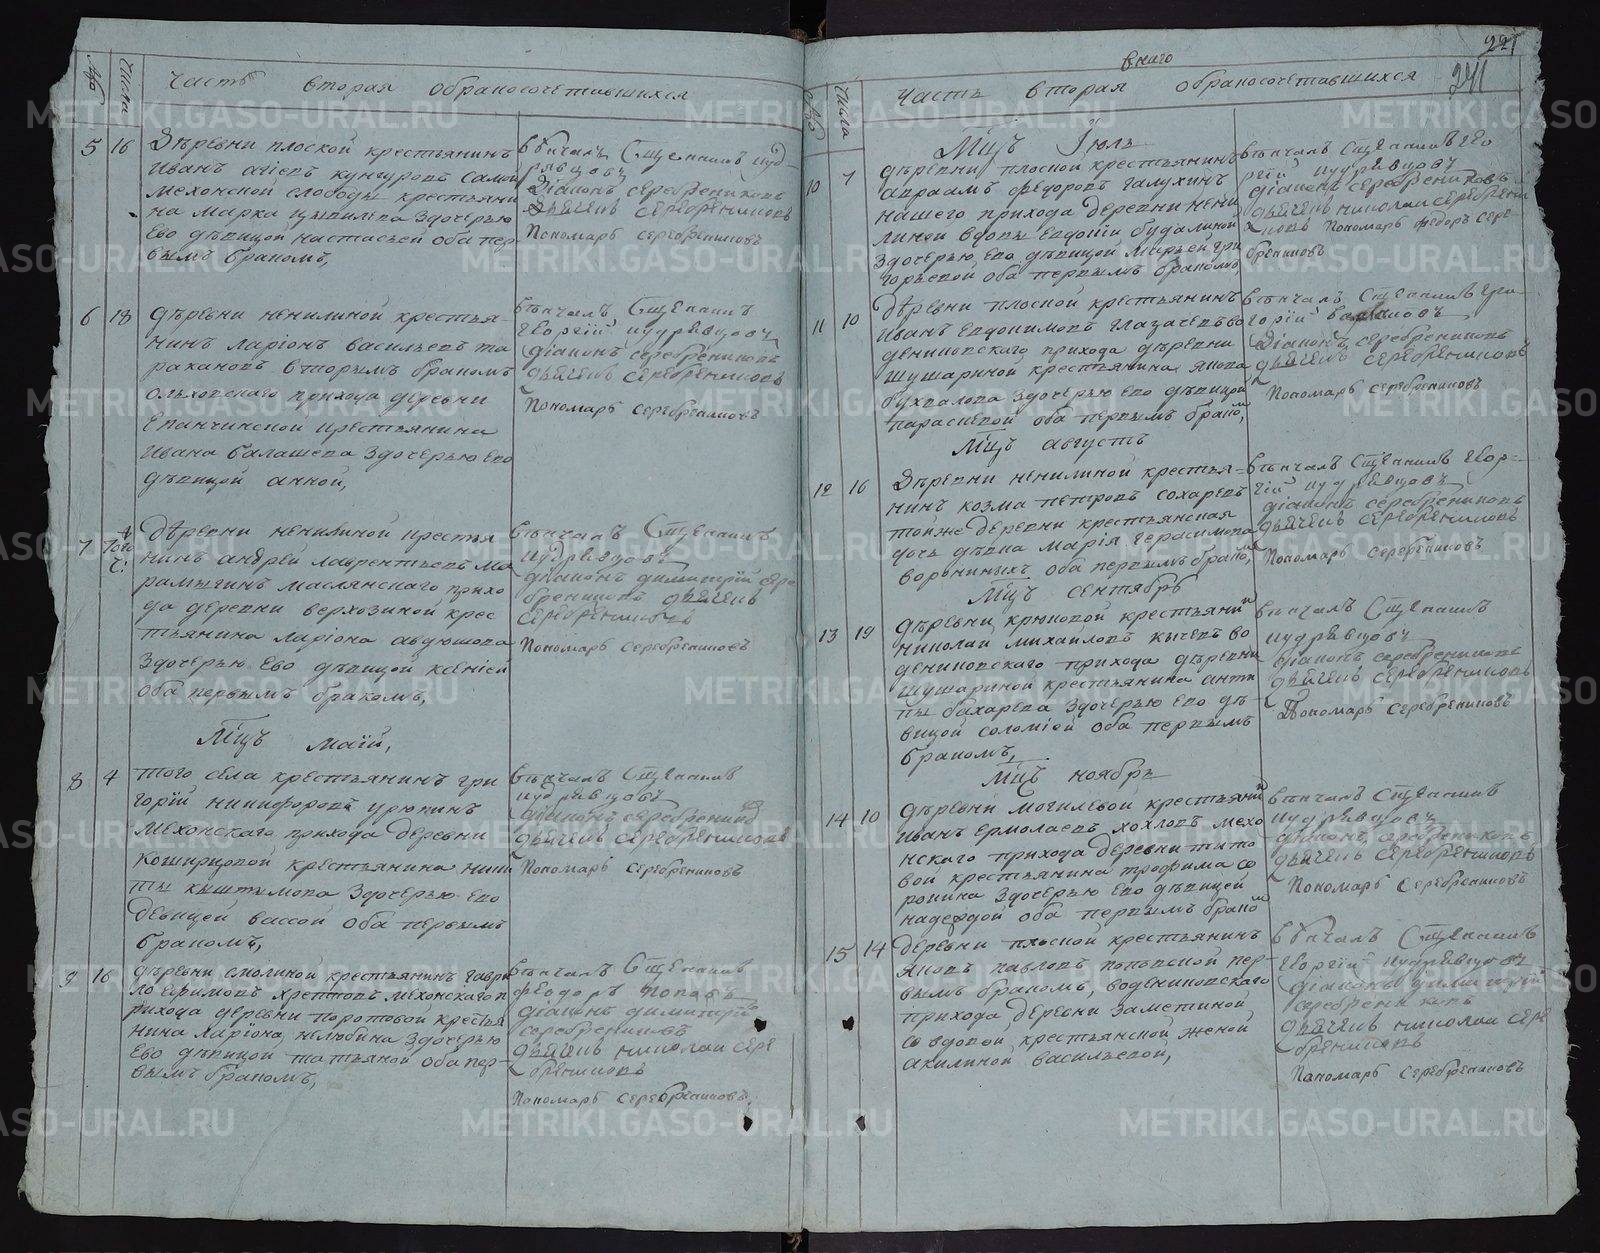 №
Числа
Часть вторая обраносочетавшихся
5 16 Дѣревни плоской крестьянинъ
Иванъ
мехонской слободы крестьяни
на марка здочерью
Ево дѣвицой настасьей оба пер
вымъ браномъ,
вѣнчалъ Сщенникъ куд
рявцовъ
Діаконъ серебрениковъ
Дьячекъ серебрениковъ
Пономарь серебрениковъ
6 18 дѣревни ненилиной крестья-
нинъ ларіонъ васильевъ та
ракановъ вторымъ браномъ
ольховскаго прихода деревни
Епанчинской крестьянина
Ивана балашева здочерью Ево
дѣвицой анной,
вѣнчалъ Сщенникъ
георгій кудрявцовъ
діаконъ серебрениковъ
дьячекъ серебрениковъ
Пономарь серебрениковъ
7 того
ч:
дѣревни ненилиной крестья
нинъ андрей лаврентьевъ ма
рамыгинъ маслянскаго прихо
да деревни верхозиной крес
тьянина ларіона авдюшова
здочерью Ево дѣвицой ксеніей
оба первымъ бракомъ,
вѣнчалъ Сщенникъ
кудрявцовъ
діаконъ димитрій сере
брениковъ дьячекъ
серебрениковъ
Пономарь серебрениковъ
Мцъ маій,
8 4 того села крестьянинъ гри
горій никифоровъ урюпинъ
мехонскаго прихода деревни
коширцовой крестьянина ники
ты кыштымова здочерью Ево
девицей вассой оба первымъ
браномъ,
вѣнчалъ Сщенникъ
кудрявцовъ
діаконъ серебрениковъ
дьячекъ серебрениковъ
Пономарь серебрениковъ
9 16 дѣревни смолиной крестьянинъ гаври
ло ефимовъ мехонскаго п
рихода деревни поротовой крестья
нина ларіона нелюбина здочерью
Ево дѣвицой татьяной оба пер-
вымъ браномъ,
вѣнчалъ Сщенникъ
феодоръ поповъ
діаконъ димитрій
серебрениковъ
дьячекъ николай сере
брениковъ
Пономарь серебрениковъ.
221
241
внаго
№
Числа
Часть вторая обраносочетавшихся
Мцъ Іюль
10 7 дѣревни плоской крестьянинъ
авраамъ федоровъ галухинъ
нашего прихода деревни нени
линой вдовы Евдокіи будалиной
здочерью, Ево дѣвицой марьей гри
горьевой оба первымъ браномъ
вѣнчалъ Сщенникъ гео
ргій кудрявцовъ
діаконъ серебрениковъ
дьячекъ николай серебрени
ковъ Пономарь федоръ сере-
брениковъ
11 10 Дѣревни плоской крестьянинъ
Иванъ Евдокимовъ глазачевъ во
дениновскаго прихода дѣревни
шушариной крестьянина якова
бухвалова здочерью Ево дѣвицой
параскевой оба первымъ браном,
вѣнчалъ Сщенникъ гри-
горій
Діаконъ серебрениковъ
дьячекъ серебрениковъ
Пономарь серебрениковъ
Мцъ августъ
12 16 Дѣревни ненилиной крестья-
нинъ козма петровъ сохаревъ
тойже деревни крестьянская
дочь дѣвка марія герасимова
ворониныхъ оба первымъ браном,
вѣнчалъ Сщенникъ геор-
гій кудрявцовъ
діаконъ серебрениковъ
дьячекъ серебрениковъ
Пономарь серебрениковъ
Мцъ сентябрь
13 19 дѣревни крюковой крестьянин
николай михайловъ кычевъ во
дениновскаго прихода дѣревни
шушариной крестьянина анти
пы бахарева здочерью Ево дѣ
вицой соломіей оба первымъ
браномъ,
вѣнчалъ Сщенникъ
кудрявцовъ
діаконъ серебрениковъ
дьячекъ серебрениковъ
Пономарь серебрениковъ
Мцъ ноябрь
14 10 дѣревни могилевой крестьянин
Иванъ Ермолаевъ хохловъ мехо
нскаго прихода деревни тито
вой крестьянина трофима со
ронина здочерью Ево дѣвицей
надеждой оба первымъ браном
вѣнчалъ Сщенникъ
кудрявцовъ
діаконъ серебрениковъ
дьячекъ серебрениковъ
Пономарь Серебрениковъ
15 14 деревни плоской крестьянинъ
яковъ павловъ пер-
вымъ браномъ, водениновскаго
прихода деревни заметиной
со вдовой крестьянской женой
акилиной васильевой,
вѣнчалъ Сщенникъ
георгій кудрявцовъ
діаконъ димитрій
серебрениковъ
дьячекъ николай сере
брениковъ
Пономарь серебрениковъ